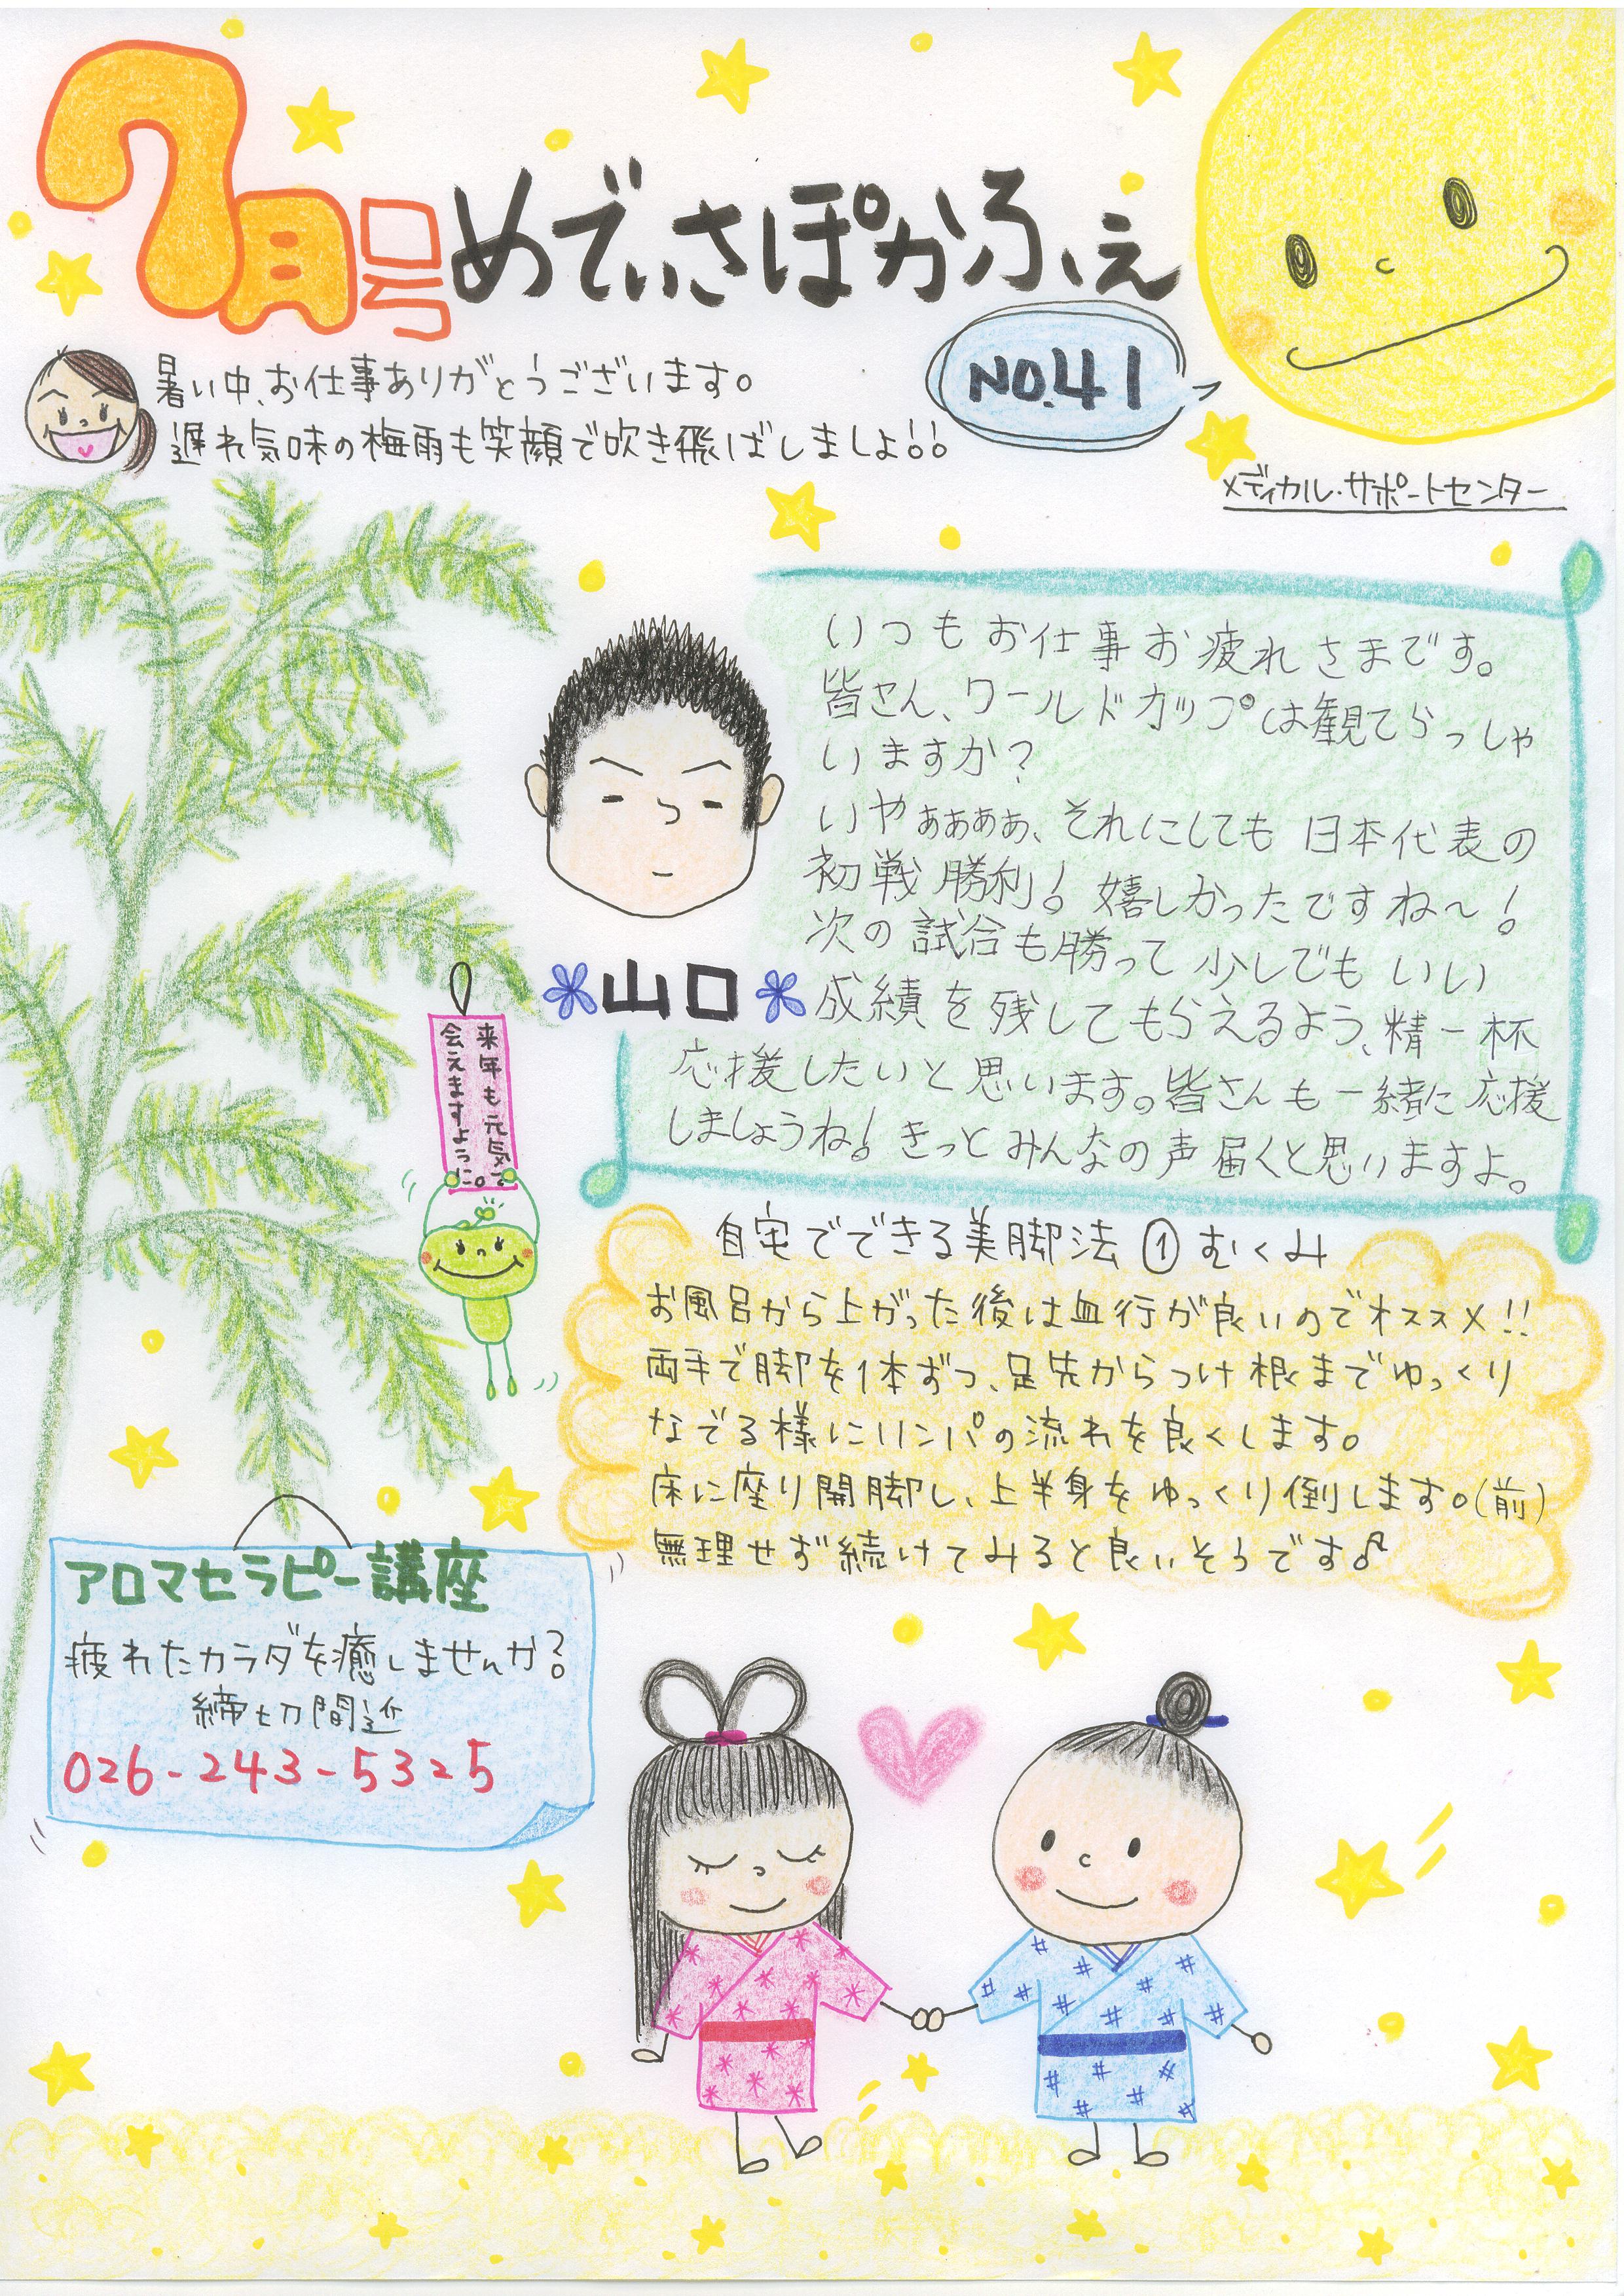 7月号 めでぃさぽかふぇ
NO.41
暑い中、お仕事ありがとうございます。
遅れ気味の梅雨も笑顔で吹き飛ばしましょ!!
メディカル・サポートセンター
いつもお仕事お疲れさまです。
皆さん、ワールドカップは観てらっしゃ
いますか?
いやぁぁぁぁ、それにしても日本代表の
初戦勝利!嬉しかったですね~!
次の試合も勝って少しでもいい
成績を残してもらえるよう、精一杯
応援したいと思います。皆さんも一緒に応援
しましょうね!きっとみんなの声届くと思いますよ。
山口
来年も元気で
会えますように。
自宅でできる美脚法①むくみ
お風呂から上がった後は血行が良いのでオススメ!!
両手で脚を1本ずつ、足先からつけ根までゆっくり
なでる様にリンパの流れを良くします。
床に座り開脚し、上半身をゆっくり倒します。(前)
無理せず続けてみると良いそうです♪
アロマセラピー講座
疲れたカラダを癒しませんか?
締切間近
026-243-5325